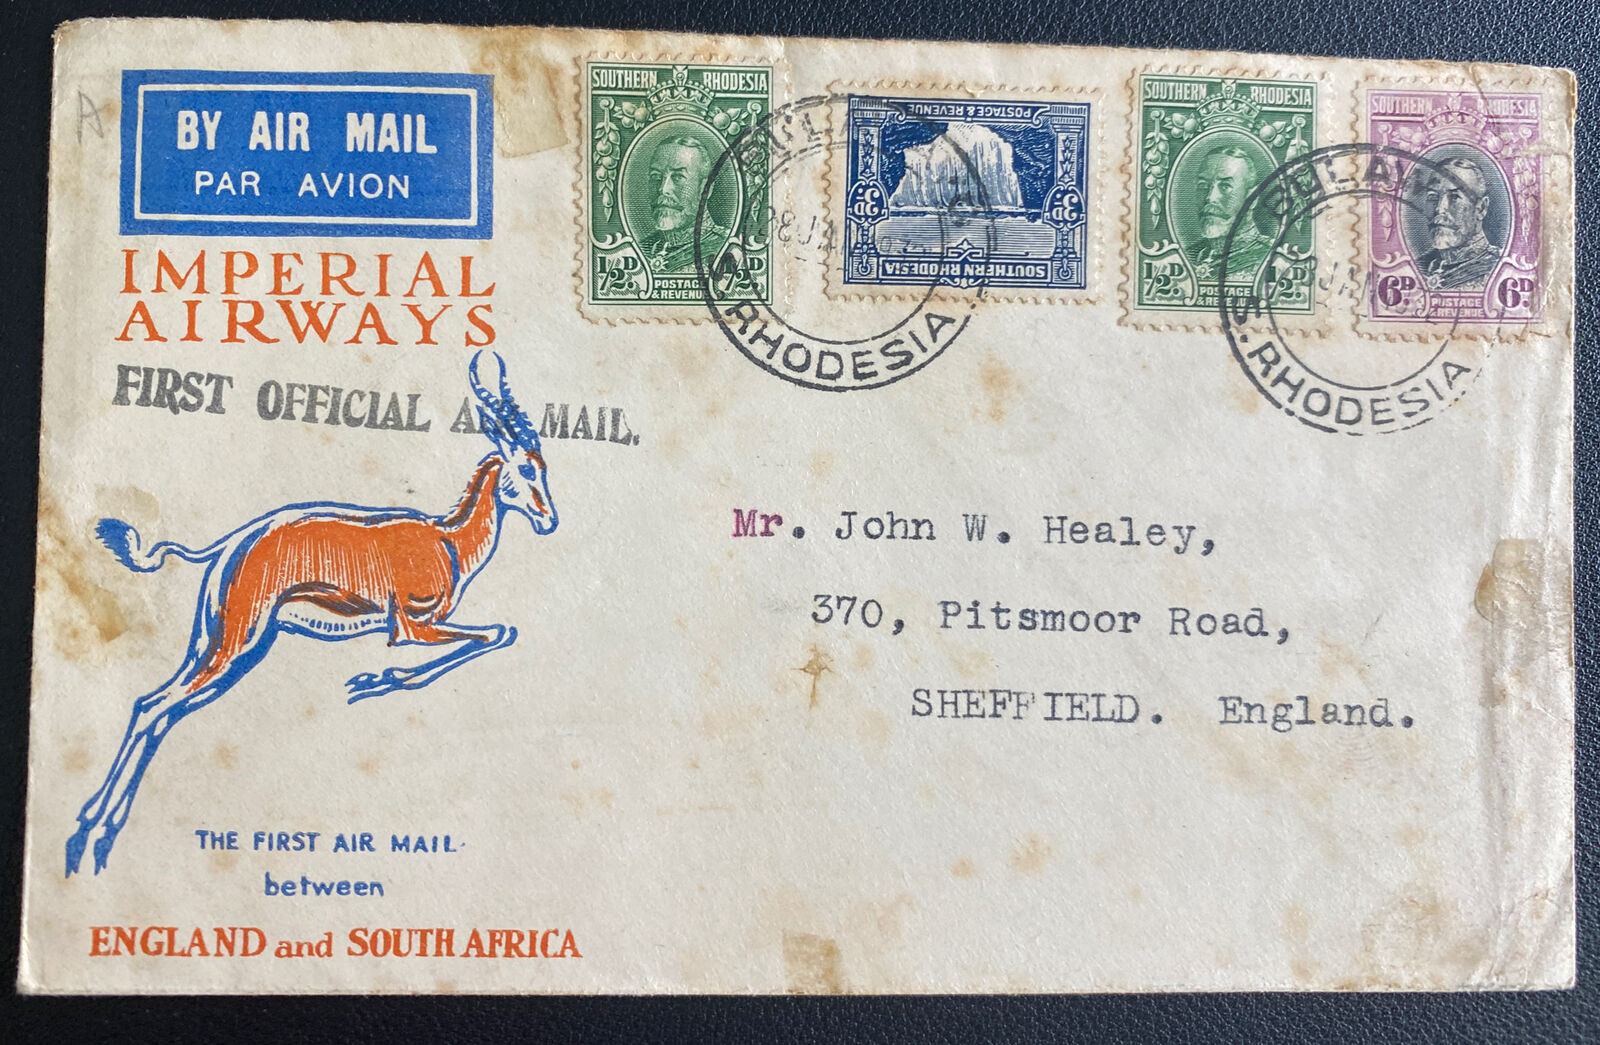 BY AIR MAIL
PAR AVION
IMPERIAL
AIRWAYS
FIRST OFFICIAL AIR MAIL.
SOUTHERN RHODESIA
½D ½D
POSTAGE
& REVENUE
POSTAGE & REVENUE
3D. 3D.
SOUTHERN RHODESIA
SOUTHERN RHODESIA
½D ½D
POSTAGE
& REVENUE
SOUTHERN RHODESIA
6D. 6D.
POSTAGE
& REVENUE
S. RHODESIA
BULAW
S. RHODESIA
Mr. John W. Healey,
370, Pitsmoor Road,
SHEFFIELD. England.
THE FIRST AIR MAIL
between
ENGLAND and SOUTH AFRICA